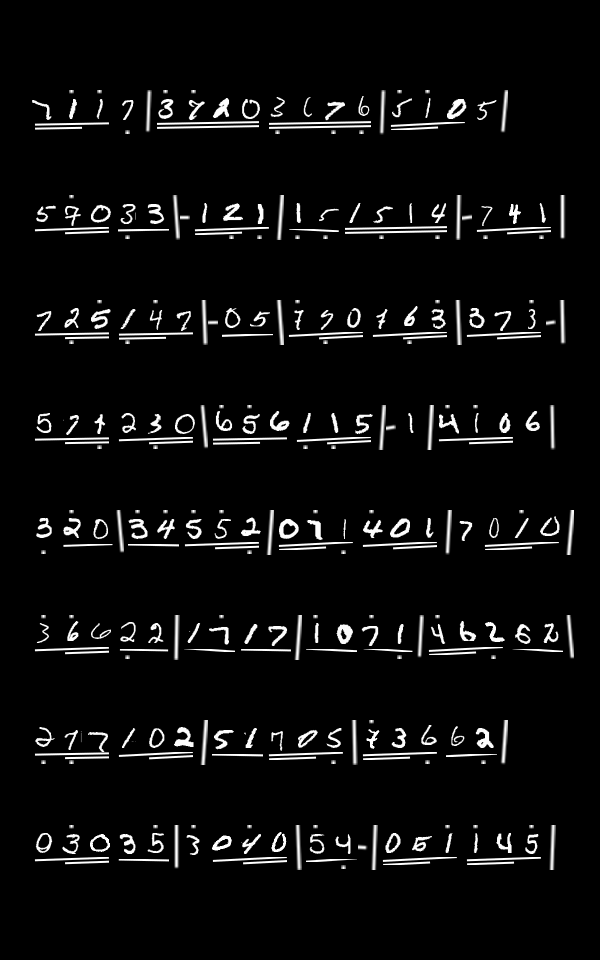 7 1 1 7 | 3 7 2 0 3 6 7 6 | 5 1 0 5 |
5 9 0 3 3 | - 1 2 1 | 1 5 1 5 1 4 | - 7 4 1 |
7 2 5 1 4 7 | - 0 5 | 7 9 0 1 6 3 | 3 7 3 - |
5 7 1 2 3 0 | 6 5 6 1 1 5 | - 1 | 4 1 0 6 |
3 2 0 | 3 4 5 5 2 | 0 7 1 4 0 1 | 7 0 1 0 |
3 6 6 2 2 | 1 7 1 7 | 1 0 7 1 | 4 6 2 6 2 |
2 7 7 1 0 2 | 5 1 7 0 5 | 7 3 6 6 2 |
0 3 0 3 5 | 3 0 4 0 | 5 4 - | 0 5 1 1 4 5 |